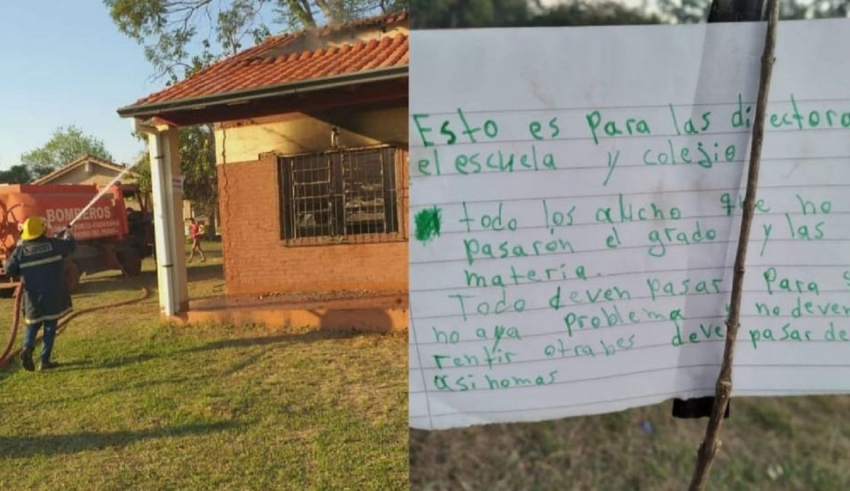 BOMBEROS
Esto es para las directora
el escuela y colejio
todo los alucho que no
pasaron el grado y las
materia.
Todo deven pasar para
no aya problema no deven
rentir otrabes deve pasar de
asi nomas